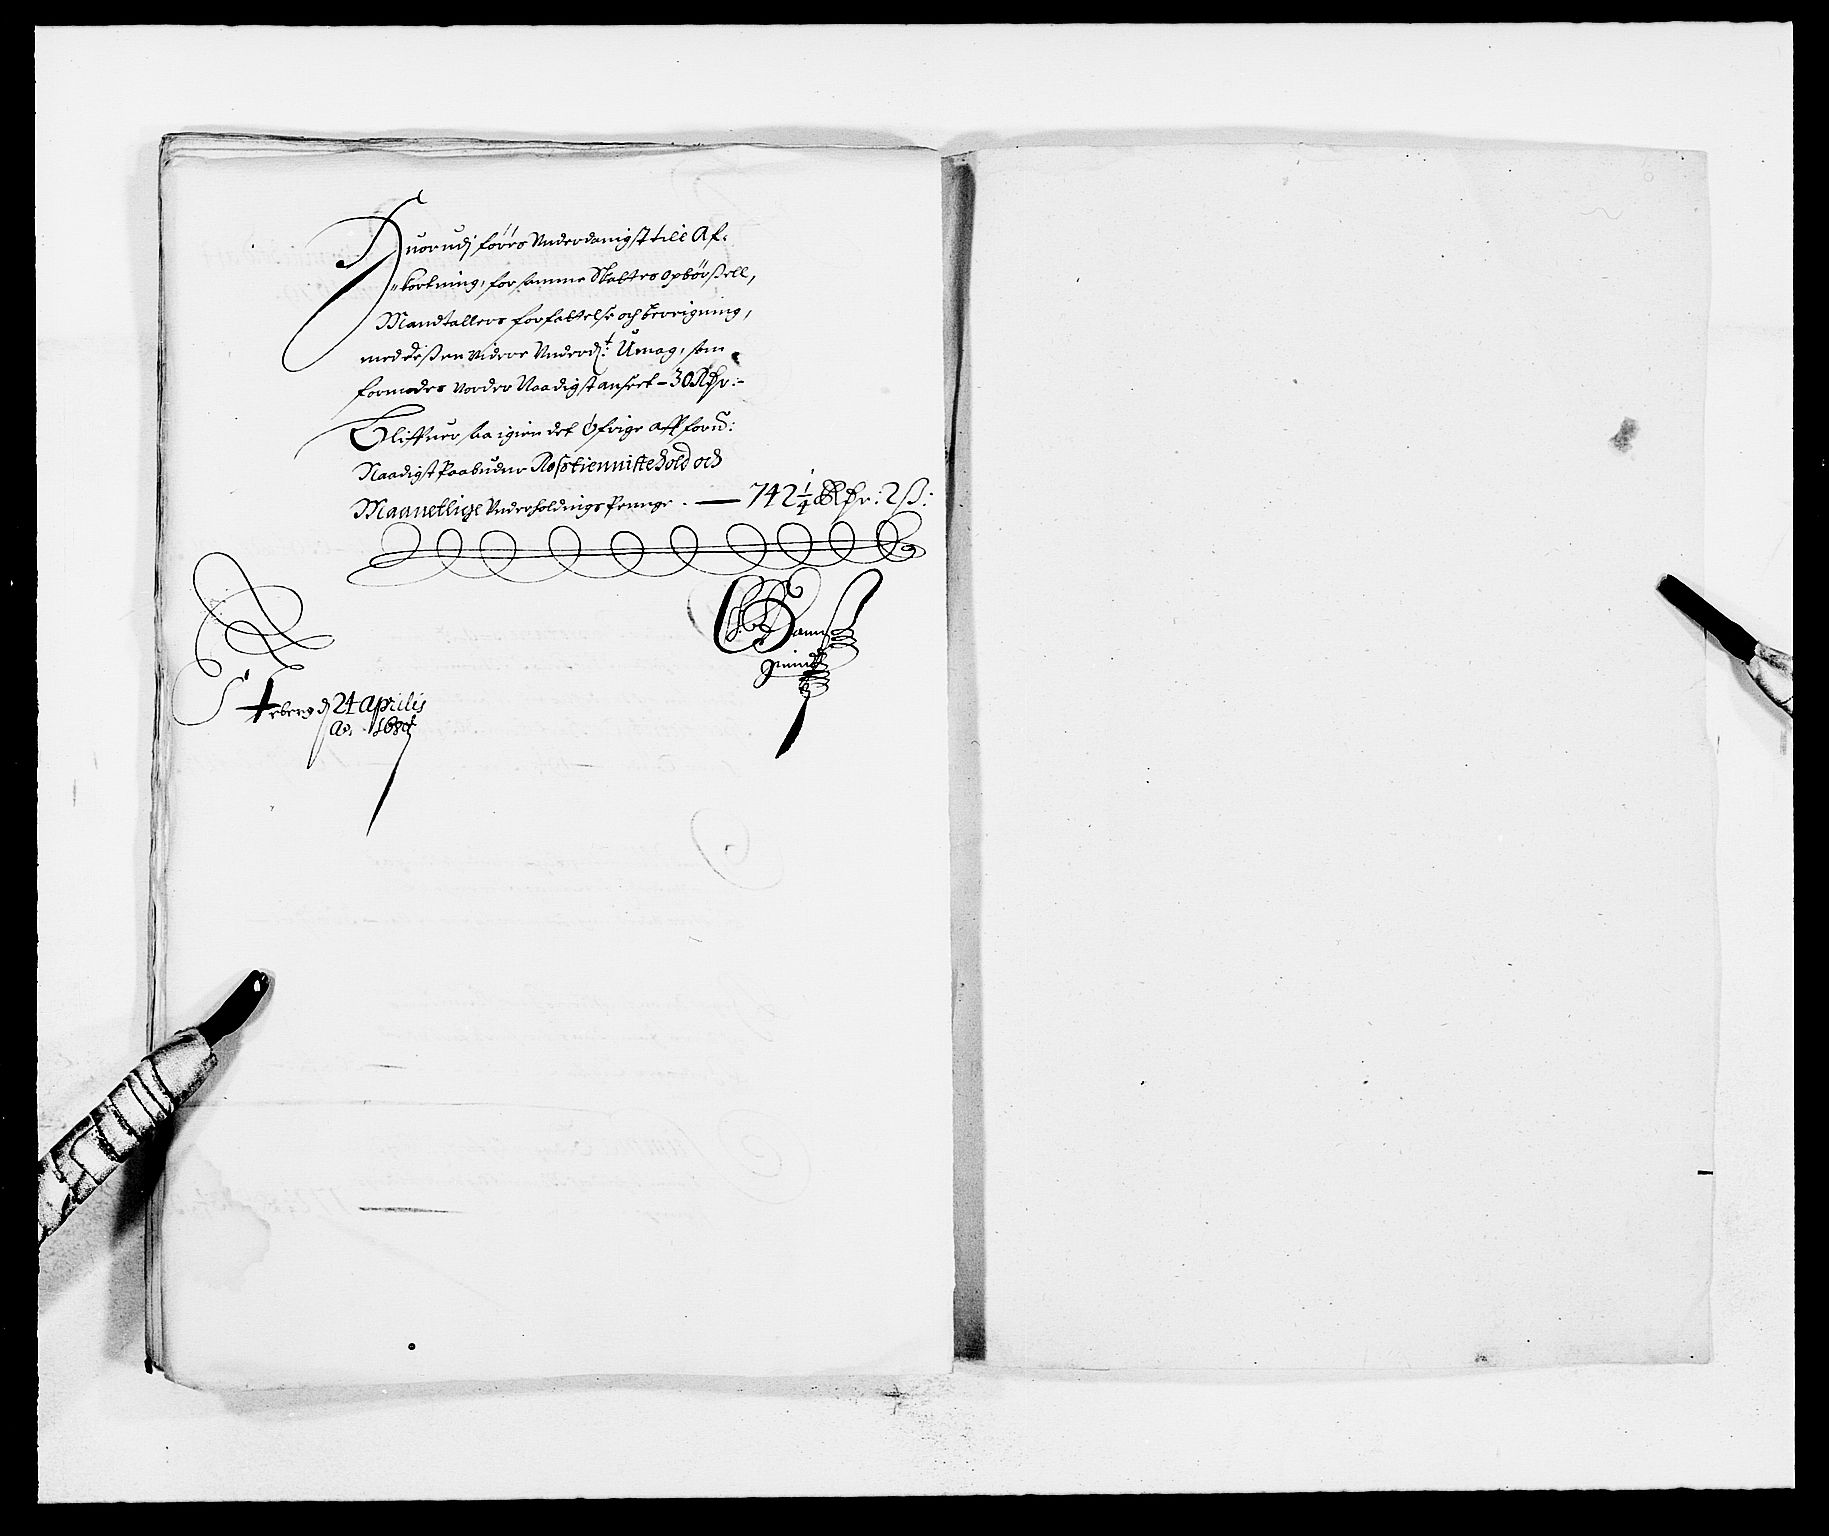 Huorudj førris Underdanigst till Af-
kortning, for samme Skatters opbørßell,
Mandtallers forfattelse och bereigning,
med deßen videre Underd: Umag, som
formodes vorder Naadigst anseet - 30 Rdr:-
Bliffuer saa igien det Øfrige aff forn:
Naadigst Paabudne Rosstienniste hold och
Maanetlige Underholdnings Penge. — 742 1/4 Rdr: 2 ß:
Hanns
berg d 24 Aprilis
Ao.